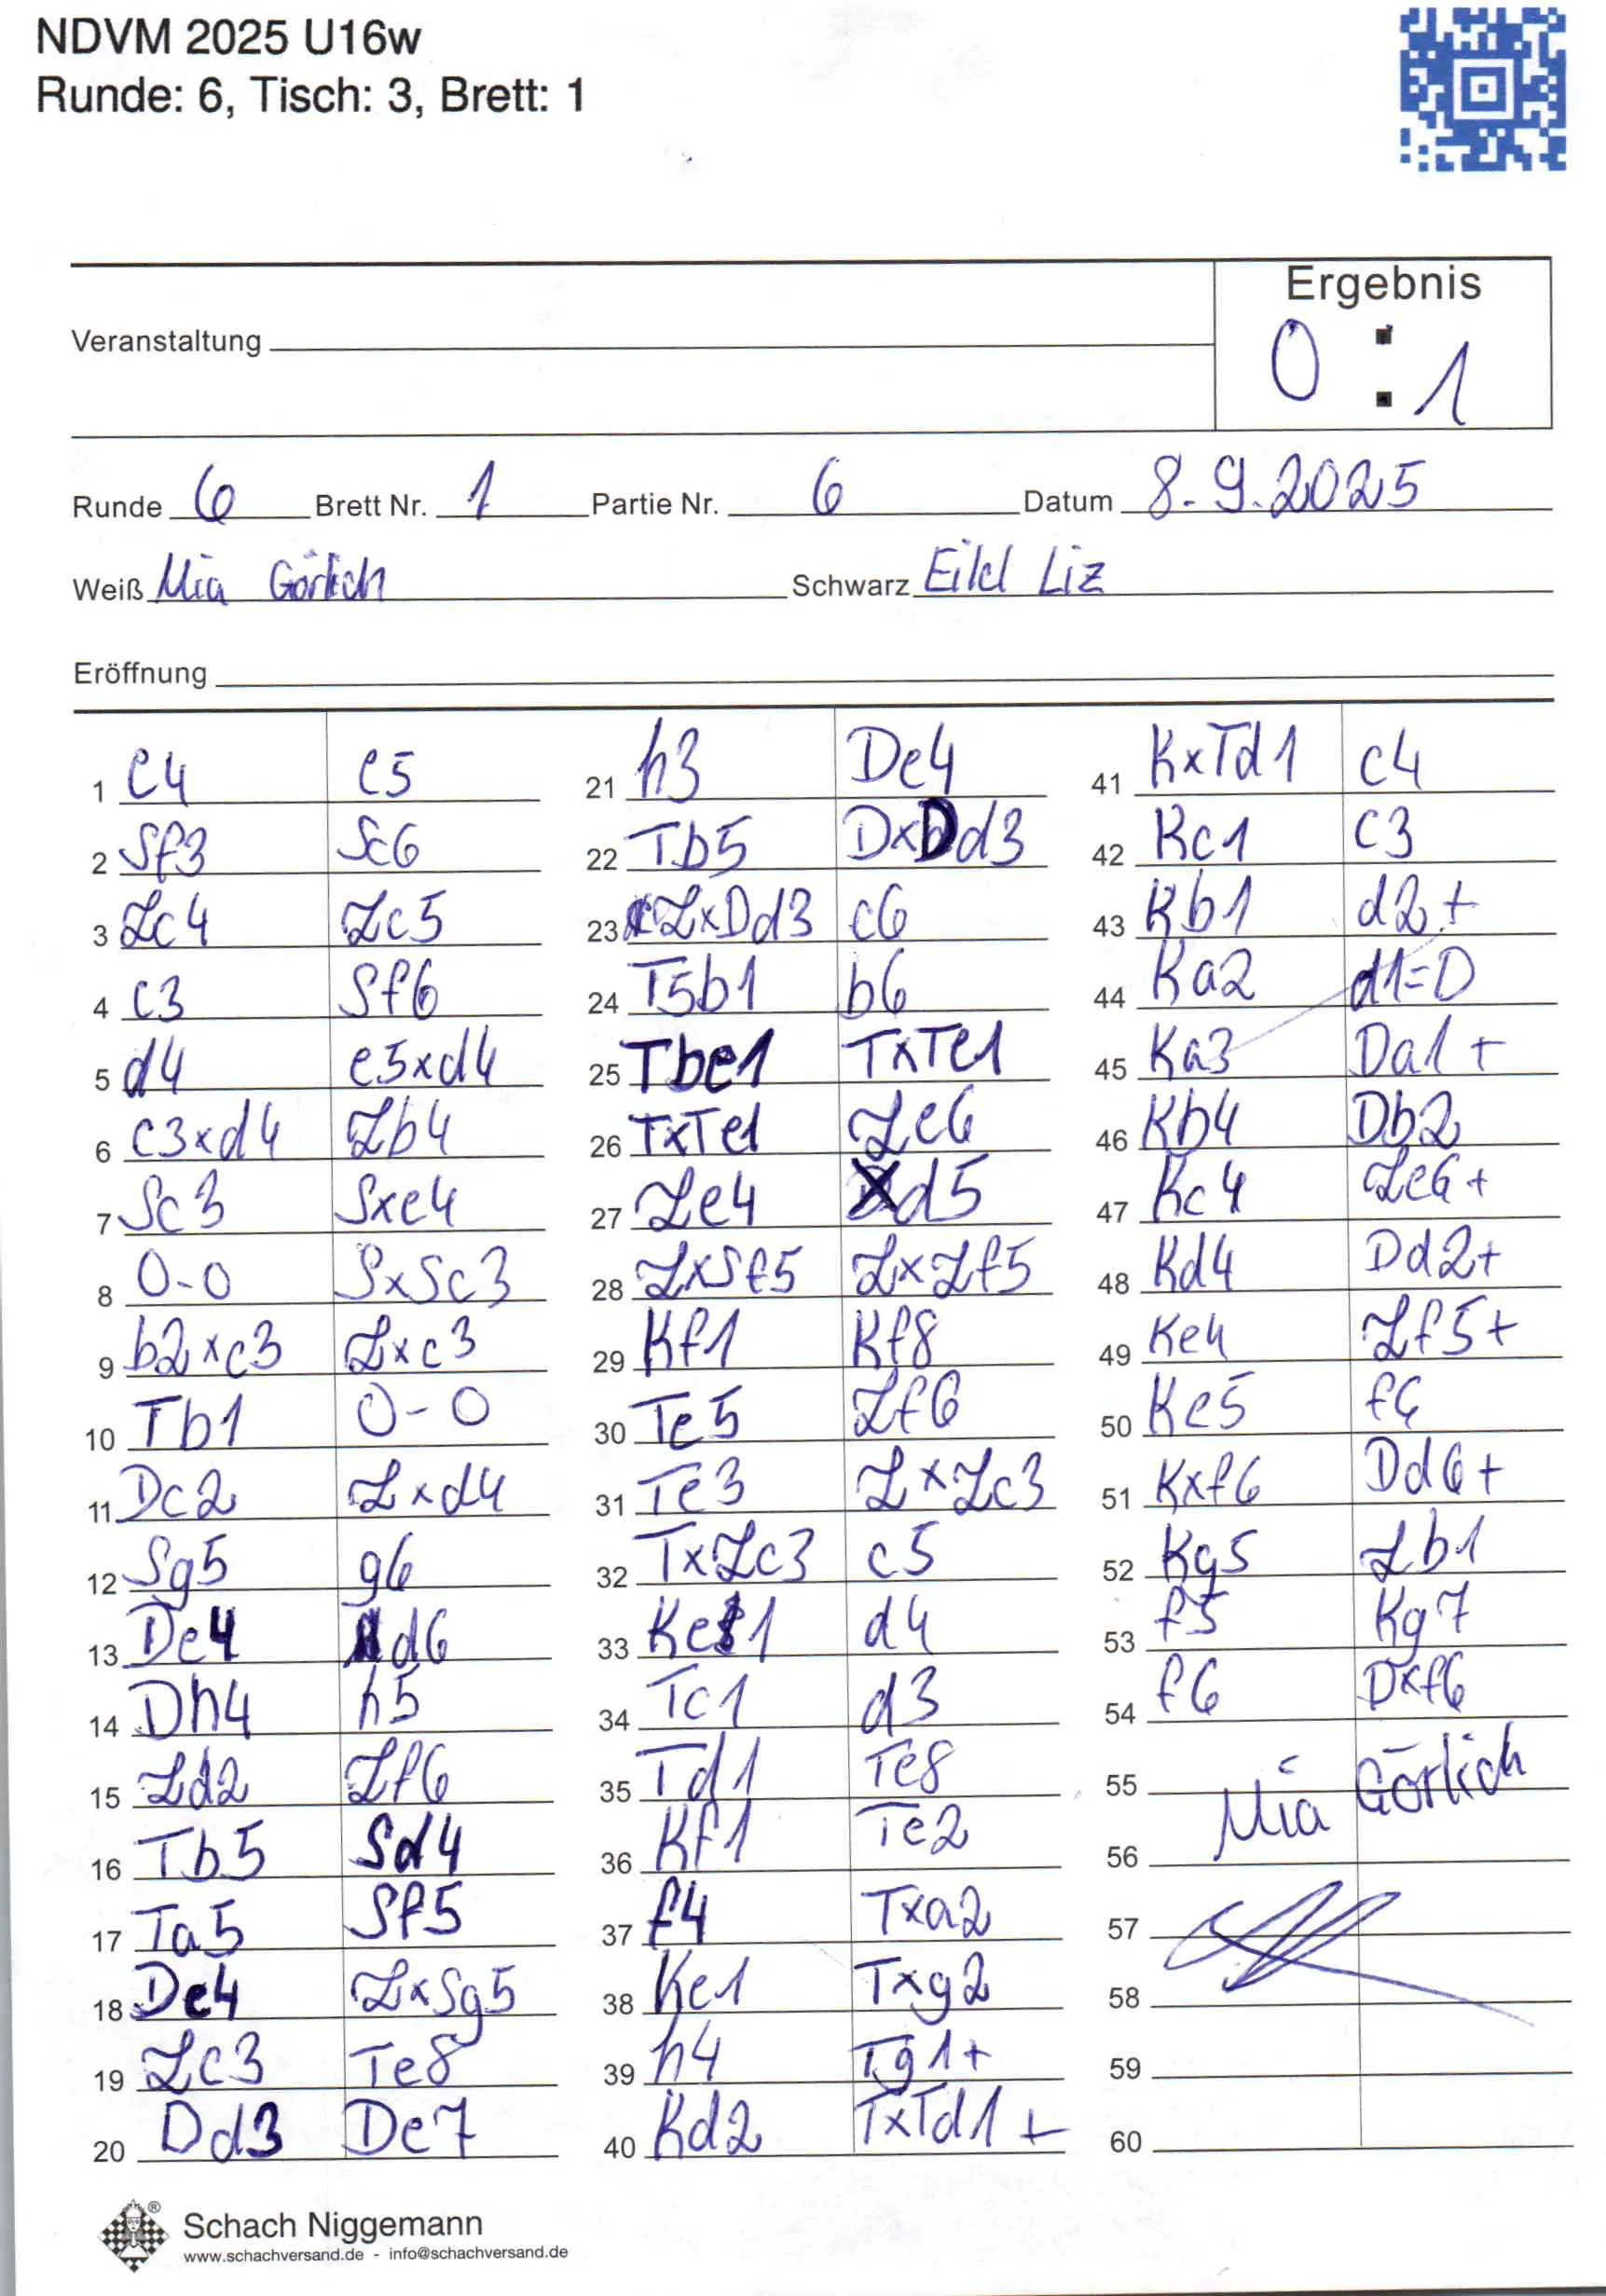 NDVM 2025 U16w
Runde: 6, Tisch: 3, Brett: 1
Ergebnis
0 : 1
Veranstaltung
Runde 6 Brett Nr. 1 Partie Nr. 6 Datum 8.9.2025
Weiß Mia Görlich Schwarz Eikl Liz
Eröffnung
1 e4 e5
2 Sf3 Sc6
3 Lc4 Lc5
4 c3 Sf6
5 d4 e5xd4
6 c3xd4 Lb4
7 Sc3 Sxe4
8 0-0 SxSc3
9 b2xc3 Lxc3
10 Tb1 0-0
11 Dc2 Lxd4
12 Sg5 g6
13 De4 d6
14 Dh4 h5
15 Ld2 Lf6
16 Tb5 Sd4
17 Ta5 Sf5
18 De4 LxSg5
19 Lc3 Te8
20 Dd3 De7
21 h3 De4
22 Tb5 DxDd3
23 LxDd3 c6
24 T5b1 b6
25 Tbe1 TxTe1
26 TxTe1 Le6
27 Le4 d5
28 LxSf5 LxLf5
29 Kf1 Kf8
30 Te5 Lf6
31 Te3 LxLc3
32 TxLc3 c5
33 Ke1 d4
34 Tc1 d3
35 Td1 Te8
36 Kf1 Te2
37 f4 Txa2
38 Ke1 Txg2
39 h4 Tg1+
40 Kd2 TxTd1+
41 KxTd1 c4
42 Kc1 c3
43 Kb1 d2+
44 Ka2 d1=D
45 Ka3 Da1+
46 Kb4 Db2
47 Kc4 Le6+
48 Kd4 Dd2+
49 Ke4 Lf5+
50 Ke5 f6
51 Kxf6 Dd6+
52 Kg5 Lb1
53 f5 Kg7
54 f6 Dxf6
55
Mia Görlich
56
57
58
59
60
Schach Niggemann
www.schachversand.de - info@schachversand.de